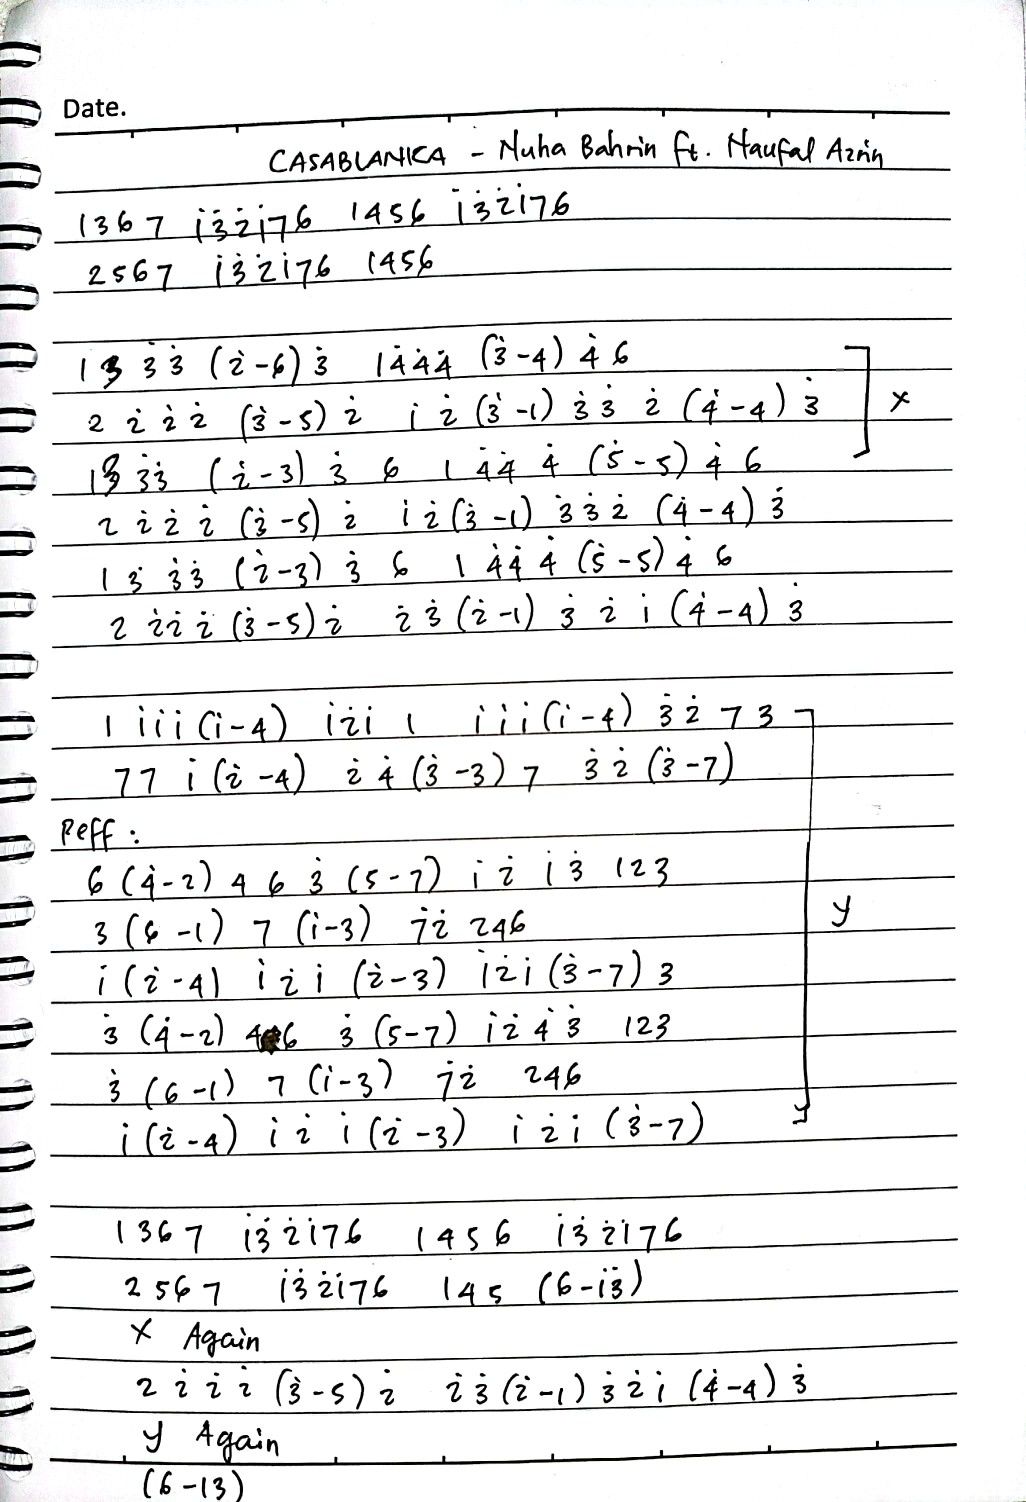 Date.
CASABLANKA - Nuha Bahrin ft. Naufal Azrin
1367 i̇3̇2̇i̇76 1456 i̇3̇2̇i̇76
2567 i̇3̇2̇i̇76 1456
1 3 3̇ 3̇ (2̇-6) 3̇ 1 4̇ 4̇ 4̇ (3̇-4) 4̇ 6
2 2̇ 2̇ 2̇ (3̇-5) 2̇ i̇ 2̇ (3̇-1) 3̇ 3̇ 2̇ (4̇-4) 3̇ x
1 3̇ 3̇ 3̇ (2̇-3) 3̇ 6 1 4̇ 4̇ 4̇ (5̇-5) 4̇ 6
2 2̇ 2̇ 2̇ (3̇-5) 2̇ i̇ 2̇ (3̇-1) 3̇ 3̇ 2̇ (4̇-4) 3̇
1 3̇ 3̇ 3̇ (2̇-3) 3̇ 6 1 4̇ 4̇ 4̇ (5̇-5) 4̇ 6
2 2̇ 2̇ 2̇ (3̇-5) 2̇ 2̇ 3̇ (2̇-1) 3̇ 2̇ i̇ (4̇-4) 3̇
1 i̇ i̇ i̇ (i̇-4) i̇ 2̇ i̇ 1 i̇ i̇ i̇ (i̇-4) 3̇ 2̇ 7 3
77 i̇ (2̇-4) 2̇ 4̇ (3̇-3) 7 3̇ 2̇ (3̇-7)
Reff :
6 (4̇-2) 4 6 3̇ (5-7) i̇ 2̇ i̇ 3̇ 123
y
3 (6-1) 7 (i̇-3) 7̇ 2̇ 246
i̇ (2̇-4) i̇ 2̇ i̇ (2̇-3) i̇ 2̇ i̇ (3̇-7) 3
3̇ (4̇-2) 4 6 3̇ (5-7) i̇ 2̇ 4̇ 3̇ 123
3̇ (6-1) 7 (i̇-3) 7̇ 2̇ 246
i̇ (2̇-4) i̇ 2̇ i̇ (2̇-3) i̇ 2̇ i̇ (3̇-7)
1367 i̇3̇2̇i̇76 1456 i̇3̇2̇i̇76
2567 i̇3̇2̇i̇76 145 (6-i̇3̇)
X Again
2 2̇ 2̇ 2̇ (3̇-5) 2̇ 2̇ 3̇ (2̇-1) 3̇ 2̇ i̇ (4̇-4) 3̇
y Again
(6-13)